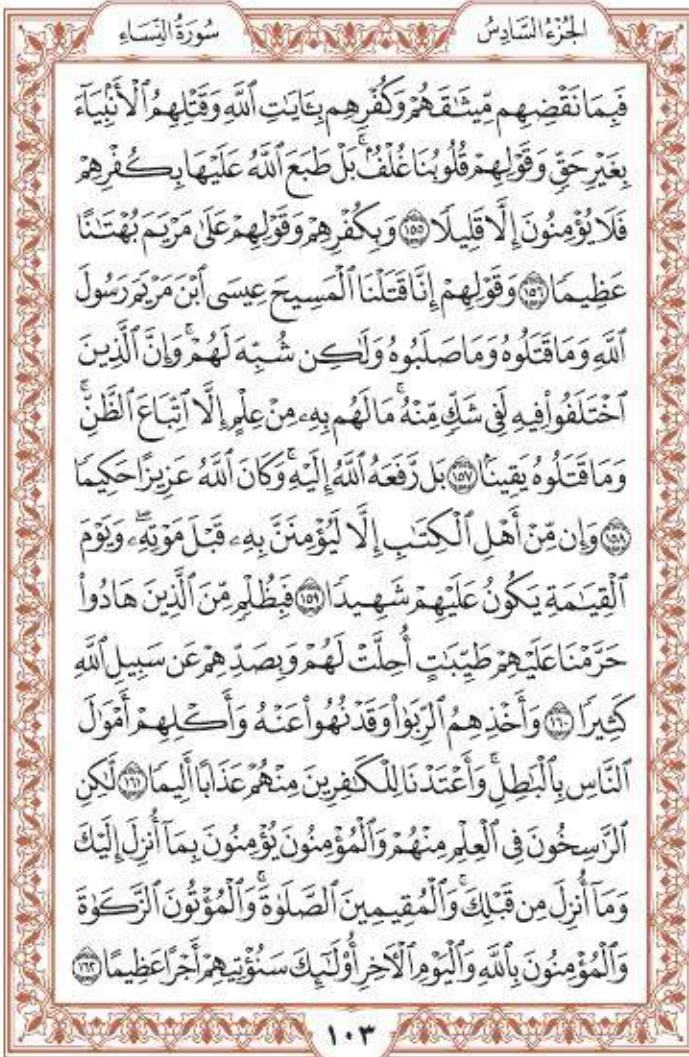 الجُزْءُ السَّادِسُ
سُورَةُ النِّسَاءِ
فَبِمَا نَقْضِهِم مِّيثَٰقَهُمْ وَكُفْرِهِم بِـَٔايَٰتِ ٱللَّهِ وَقَتْلِهِمُ ٱلْأَنۢبِيَآءَ
بِغَيْرِ حَقٍّ وَقَوْلِهِمْ قُلُوبُنَا غُلْفٌۢ ۚ بَلْ طَبَعَ ٱللَّهُ عَلَيْهَا بِكُفْرِهِمْ
فَلَا يُؤْمِنُونَ إِلَّا قَلِيلًا ١٥٥ وَبِكُفْرِهِمْ وَقَوْلِهِمْ عَلَىٰ مَرْيَمَ بُهْتَٰنًا
عَظِيمًا ١٥٦ وَقَوْلِهِمْ إِنَّا قَتَلْنَا ٱلْمَسِيحَ عِيسَى ٱبْنَ مَرْيَمَ رَسُولَ
ٱللَّهِ وَمَا قَتَلُوهُ وَمَا صَلَبُوهُ وَلَٰكِن شُبِّهَ لَهُمْ ۚ وَإِنَّ ٱلَّذِينَ
ٱخْتَلَفُوا۟ فِيهِ لَفِى شَكٍّ مِّنْهُ ۚ مَا لَهُم بِهِۦ مِنْ عِلْمٍ إِلَّا ٱتِّبَاعَ ٱلظَّنِّ ۚ
وَمَا قَتَلُوهُ يَقِينًۢا ١٥٧ بَل رَّفَعَهُ ٱللَّهُ إِلَيْهِ ۚ وَكَانَ ٱللَّهُ عَزِيزًا حَكِيمًا
١٥٨ وَإِن مِّنْ أَهْلِ ٱلْكِتَٰبِ إِلَّا لَيُؤْمِنَنَّ بِهِۦ قَبْلَ مَوْتِهِۦ ۖ وَيَوْمَ
ٱلْقِيَٰمَةِ يَكُونُ عَلَيْهِمْ شَهِيدًا ١٥٩ فَبِظُلْمٍ مِّنَ ٱلَّذِينَ هَادُوا۟
حَرَّمْنَا عَلَيْهِمْ طَيِّبَٰتٍ أُحِلَّتْ لَهُمْ وَبِصَدِّهِمْ عَن سَبِيلِ ٱللَّهِ
كَثِيرًا ١٦٠ وَأَخْذِهِمُ ٱلرِّبَوٰا۟ وَقَدْ نُهُوا۟ عَنْهُ وَأَكْلِهِمْ أَمْوَٰلَ
ٱلنَّاسِ بِٱلْبَٰطِلِ ۚ وَأَعْتَدْنَا لِلْكَٰفِرِينَ مِنْهُمْ عَذَابًا أَلِيمًا ١٦١ لَّٰكِنِ
ٱلرَّٰسِخُونَ فِى ٱلْعِلْمِ مِنْهُمْ وَٱلْمُؤْمِنُونَ يُؤْمِنُونَ بِمَآ أُنزِلَ إِلَيْكَ
وَمَآ أُنزِلَ مِن قَبْلِكَ ۚ وَٱلْمُقِيمِينَ ٱلصَّلَوٰةَ ۚ وَٱلْمُؤْتُونَ ٱلزَّكَوٰةَ
وَٱلْمُؤْمِنُونَ بِٱللَّهِ وَٱلْيَوْمِ ٱلْـَٔاخِرِ أُو۟لَٰٓئِكَ سَنُؤْتِيهِمْ أَجْرًا عَظِيمًا ١٦٢
١٠٣